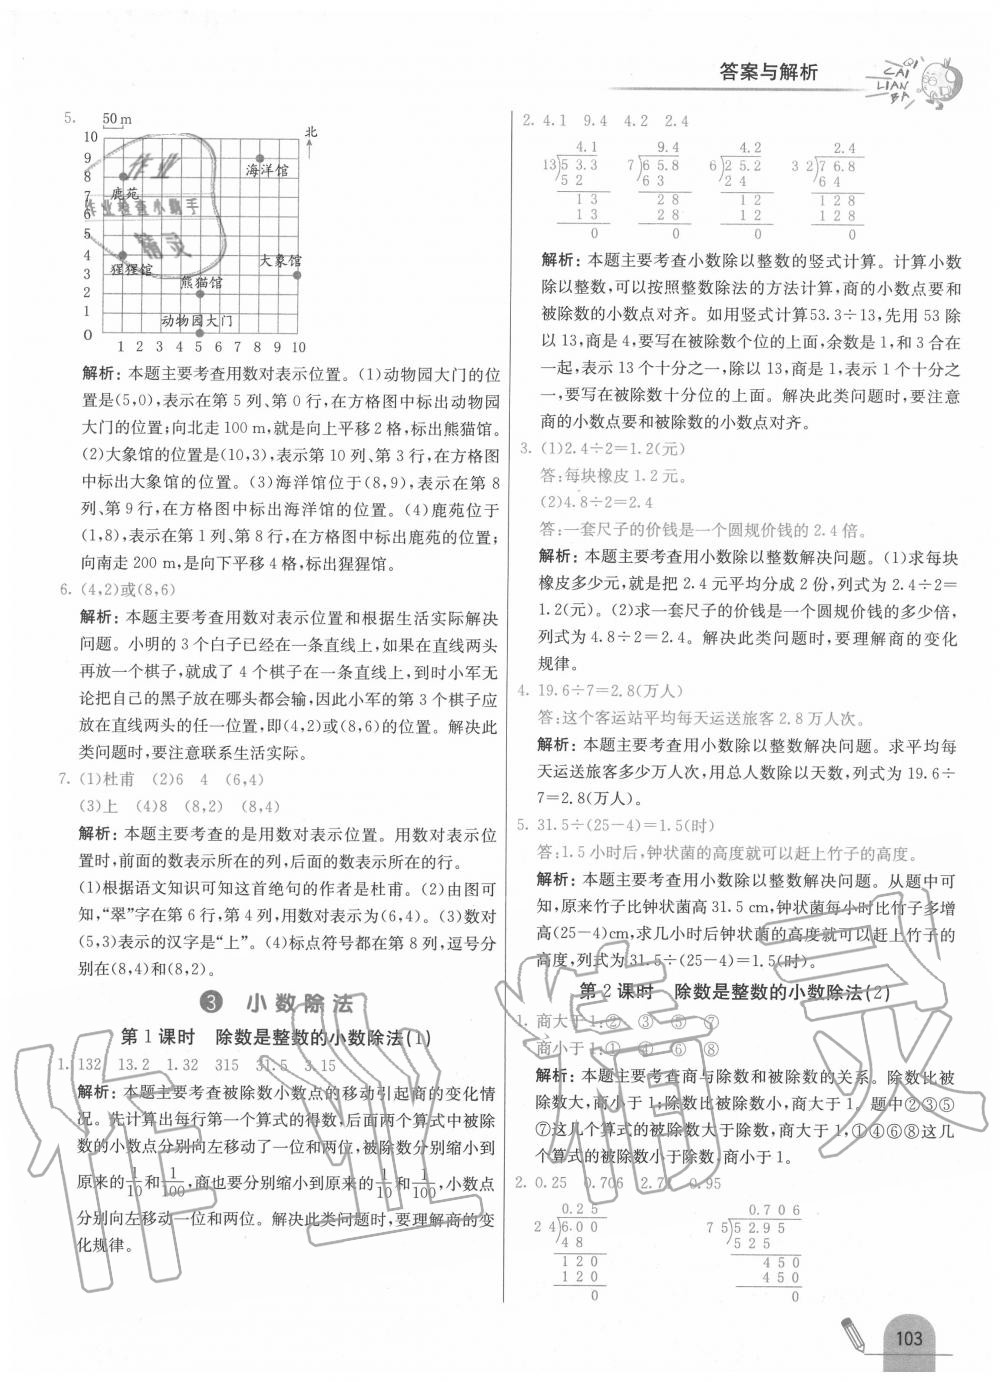 答案与解析
QI CAI LIAN BA
5. 50 m
北
10
9
8
7
6
5
4
3
2
1
0
1 2 3 4 5 6 7 8 9 10
海洋馆
鹿苑
猩猩馆
大象馆
熊猫馆
动物园大门
作业
作业检查小助手
精灵
解析:本题主要考查用数对表示位置。(1)动物园大门的位
置是(5,0),表示在第 5 列、第 0 行,在方格图中标出动物园
大门的位置;向北走 100 m,就是向上平移 2 格,标出熊猫馆。
(2)大象馆的位置是(10,3),表示第 10 列、第 3 行,在方格图
中标出大象馆的位置。(3)海洋馆位于(8,9),表示在第 8
列、第 9 行,在方格图中标出海洋馆的位置。(4)鹿苑位于
(1,8),表示在第 1 列、第 8 行,在方格图中标出鹿苑的位置;
向南走 200 m,是向下平移 4 格,标出猩猩馆。
6. (4,2)或(8,6)
解析:本题主要考查用数对表示位置和根据生活实际解决
问题。小明的 3 个白子已经在一条直线上,如果在直线两头
再放一个棋子,就成了 4 个棋子在一条直线上,到时小军无
论把自己的黑子放在哪头都会输,因此小军的第 3 个棋子应
放在直线两头的任一位置,即(4,2)或(8,6)的位置。解决此
类问题时,要注意联系生活实际。
7. (1)杜甫 (2)6 4 (6,4)
(3)上 (4)8 (8,2) (8,4)
解析:本题主要考查的是用数对表示位置。用数对表示位
置时,前面的数表示所在的列,后面的数表示所在的行。
(1)根据语文知识可知这首绝句的作者是杜甫。(2)由图可
知,“翠”字在第 6 行,第 4 列,用数对表示为(6,4)。(3)数对
(5,3)表示的汉字是“上”。(4)标点符号都在第 8 列,逗号分
别在(8,4)和(8,2)。
3 小数除法
第 1 课时 除数是整数的小数除法(1)
1. 132 13.2 1.32 315 31.5 3.15
解析:本题主要考查被除数小数点的移动引起商的变化情
况。先计算出每行第一个算式的得数,后面两个算式中被除
数的小数点分别向左移动了一位和两位,被除数分别缩小到
原来的1/10和1/100,商也要分别缩小到原来的1/10和1/100,小数点
分别向左移动一位和两位。解决此类问题时,要理解商的变
化规律。
2. 4.1 9.4 4.2 2.4
4.1 9.4 4.2 2.4
13)53.3 7)65.8 6)25.2 32)76.8
52 63 24 64
13 28 12 128
13 28 12 128
0 0 0 0
解析:本题主要考查小数除以整数的竖式计算。计算小数
除以整数,可以按照整数除法的方法计算,商的小数点要和
被除数的小数点对齐。如用竖式计算53.3÷13,先用 53 除
以 13,商是 4,要写在被除数个位的上面,余数是 1,和 3 合在
一起,表示 13 个十分之一,除以 13,商是 1,表示 1 个十分之
一,要写在被除数十分位的上面。解决此类问题时,要注意
商的小数点要和被除数的小数点对齐。
3. (1)2.4÷2=1.2(元)
答:每块橡皮 1.2 元。
(2)4.8÷2=2.4
答:一套尺子的价钱是一个圆规价钱的 2.4 倍。
解析:本题主要考查用小数除以整数解决问题。(1)求每块
橡皮多少元,就是把 2.4 元平均分成 2 份,列式为 2.4÷2=
1.2(元)。(2)求一套尺子的价钱是一个圆规价钱的多少倍,
列式为 4.8÷2=2.4。解决此类问题时,要理解商的变化
规律。
4. 19.6÷7=2.8(万人)
答:这个客运站平均每天运送旅客 2.8 万人次。
解析:本题主要考查用小数除以整数解决问题。求平均每
天运送旅客多少万人次,用总人数除以天数,列式为 19.6÷
7=2.8(万人)。
5. 31.5÷(25-4)=1.5(时)
答:1.5 小时后,钟状菌的高度就可以赶上竹子的高度。
解析:本题主要考查用小数除以整数解决问题。从题中可
知,原来竹子比钟状菌高 31.5 cm,钟状菌每小时比竹子多增
高(25-4)cm,求几小时后钟状菌的高度就可以赶上竹子的
高度,列式为31.5÷(25-4)=1.5(时)。
第 2 课时 除数是整数的小数除法(2)
1. 商大于 1:② ③ ⑤ ⑦
商小于 1:① ④ ⑥ ⑧
解析:本题主要考查商与除数和被除数的关系。除数比被
除数大,商小于 1;除数比被除数小,商大于 1。题中②③⑤
⑦这几个算式的被除数大于除数,商大于 1,①④⑥⑧这几
个算式的被除数小于除数,商小于 1。
2. 0.25 0.706 2.71 0.95
0.25 0.706
24)6.00 75)52.95
48 525
120 450
120 450
0 0
103
作业精灵